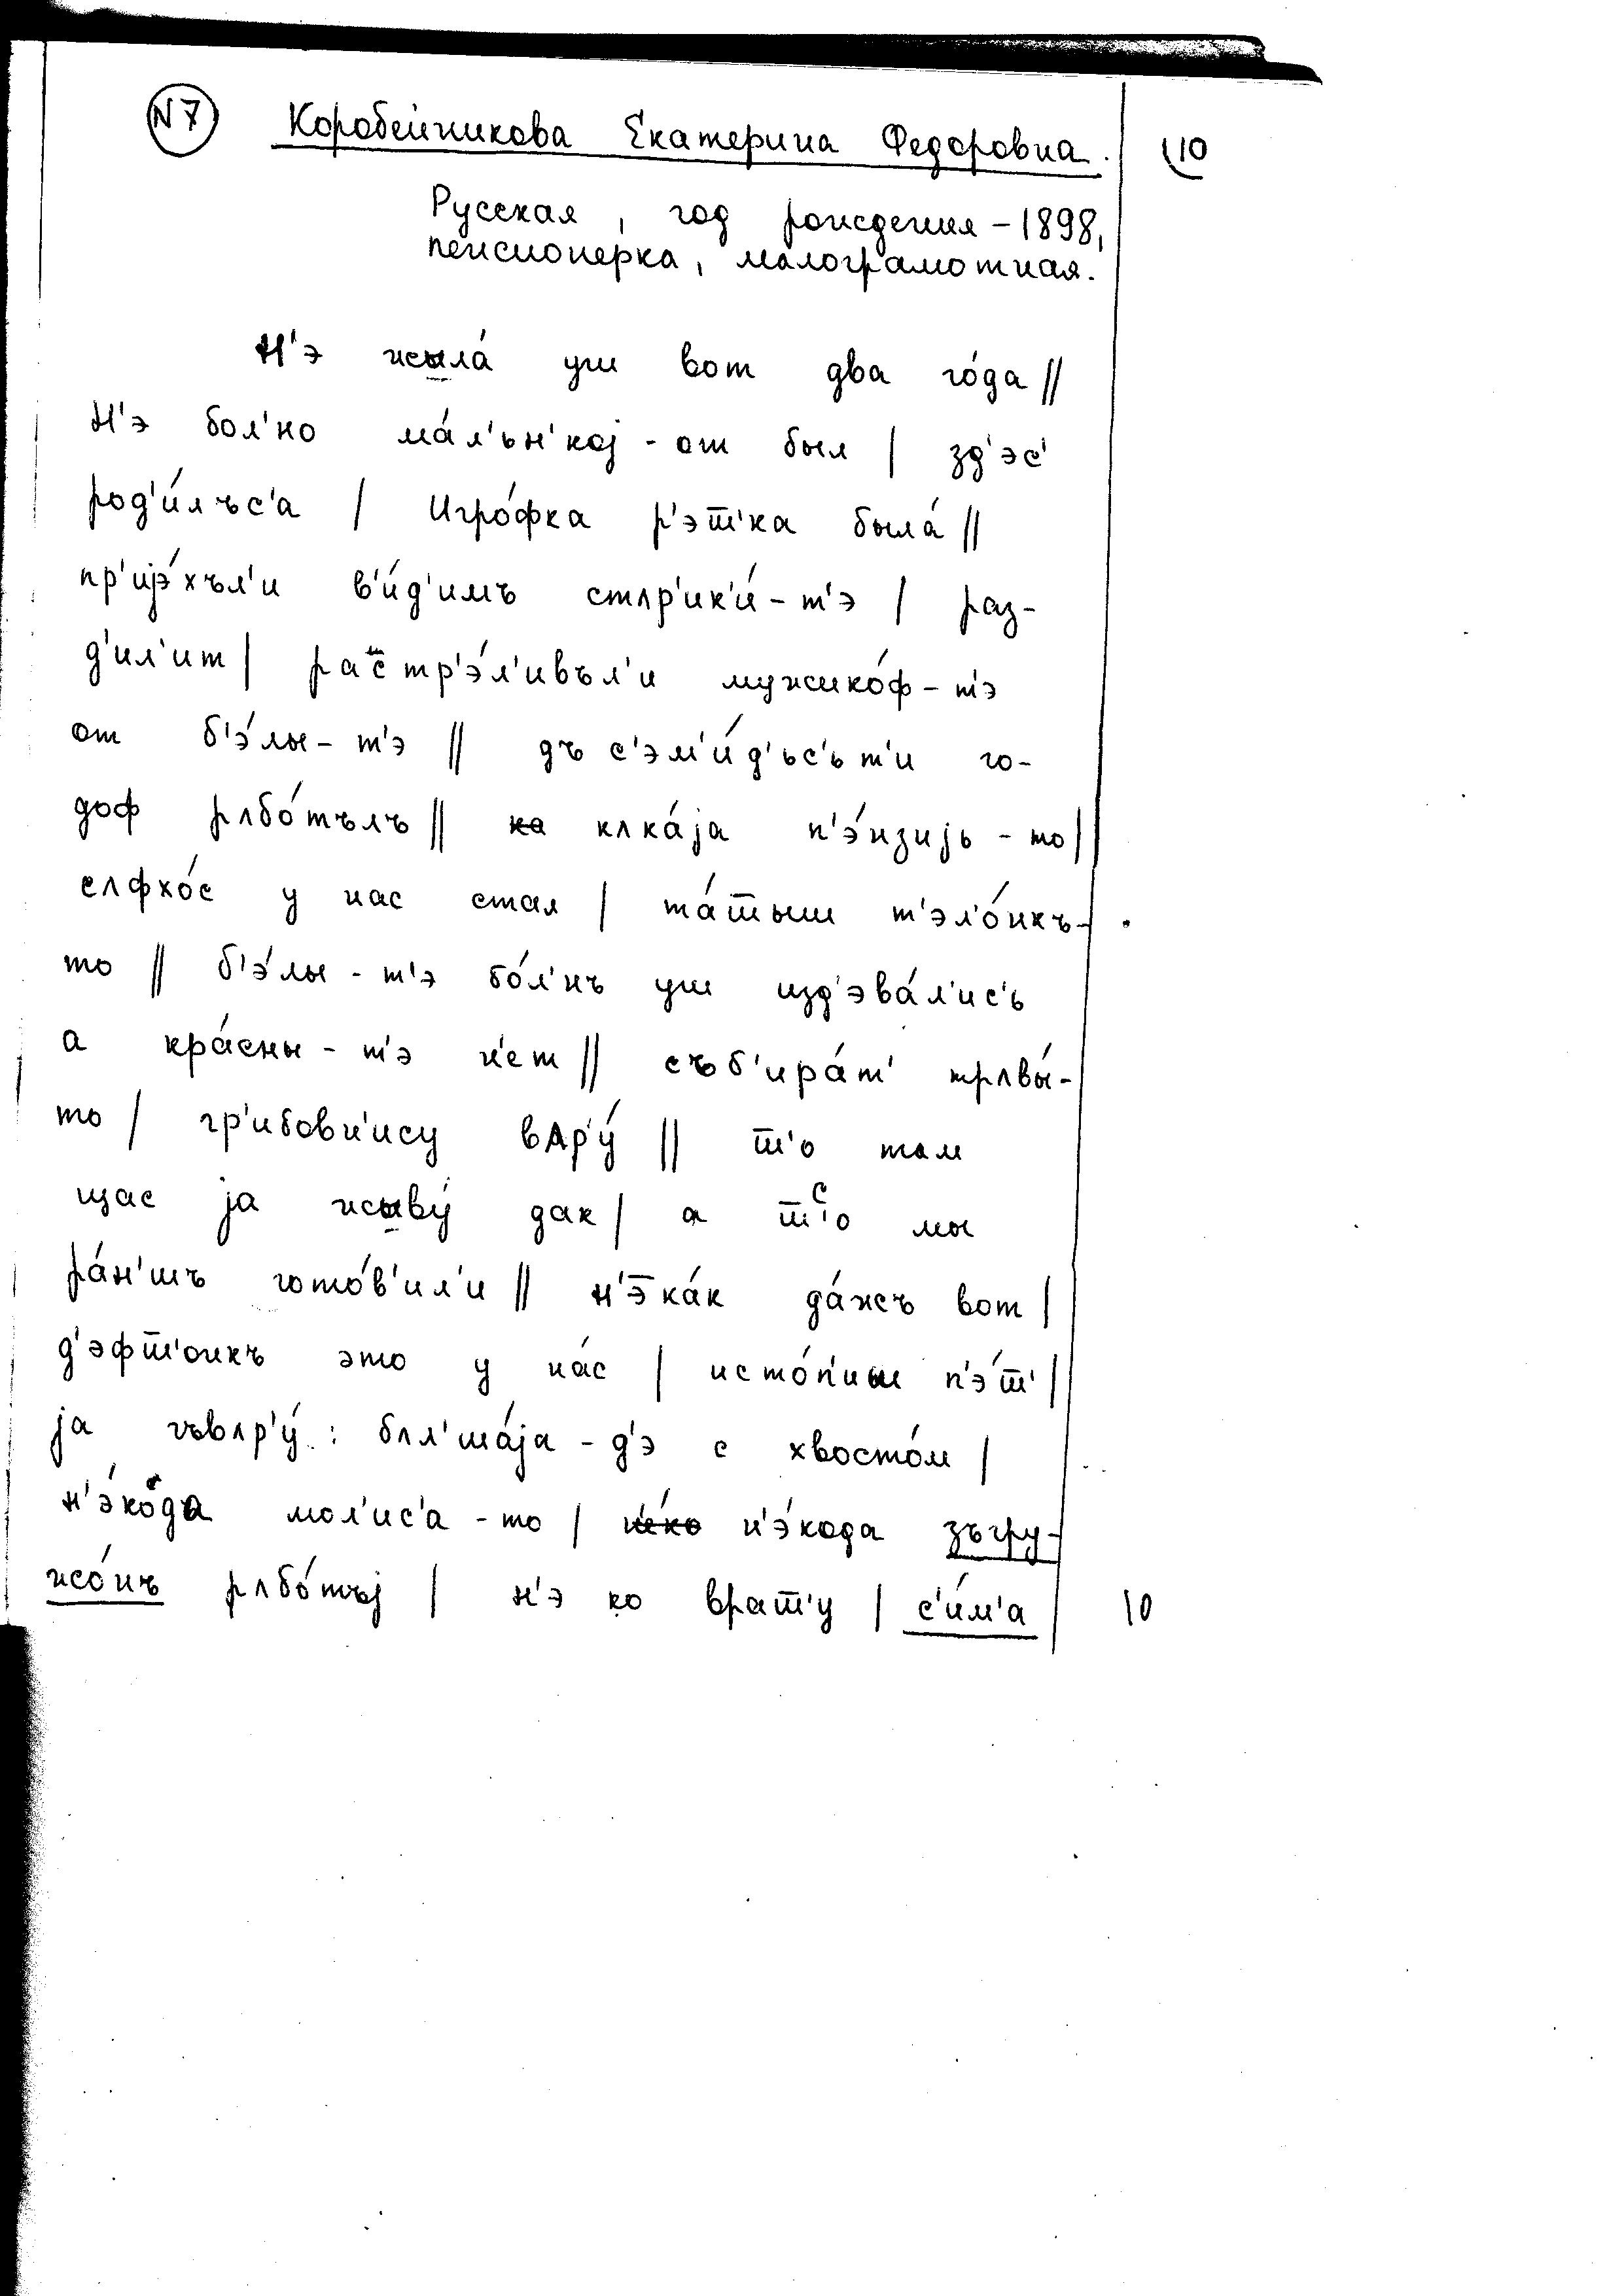 N7 Коробейникова Екатерина Федоровна. 110
Русская, год рождения – 1898,
пенсионерка, малограмотная.
Н'э жыла́ уш вот два го́да ||
Н'э бол'но ма́л'ьн'кој - от был | зд'эс'
род'и́лъс'а | Игро́фка р'эт̅'ка была́ ||
пр'ијэ́хъл'и в'и́д'имъ стʌр'ик'и́ - т'э | раз-
д'ил'ит | расстр'э́л'ивъл'и мужико́ф - т'э
от б'э́лы - т'э || дъ с'эм'и́д'ьс'ьт'и го-
доф рʌбо́тълъ || кʌка́ја п'э́нзијь - то |
сʌфхо́с у нас стал | та́т̅ыш т'эл'о́нкъ-
то || б'э́лы - т'э бо́л'нъ уш изд'эва́л'ис'ь
а кра́сны - т'э н'ет || съб'ира́т' трʌвы́-
то | гр'ибовн'ицу вʌр'у́ || т̅'о там
щас ја жыву́ дак | а т̅'о мы
ра́н'шъ гото́в'ил'и || н'э̅ ка́к да́жъ вот |
д'эфт̅'онкъ это у на́с | исто́п'иш п'э́т̅' |
ја гъвʌр'у́ : бʌл'ша́ја - д'э с хвосто́м |
н'э́кода мол'ис'а - то | н'э́кода згру-
жо́нъ рʌбо́тъј | н'э ко врат̅'у | с'и́м'а 10